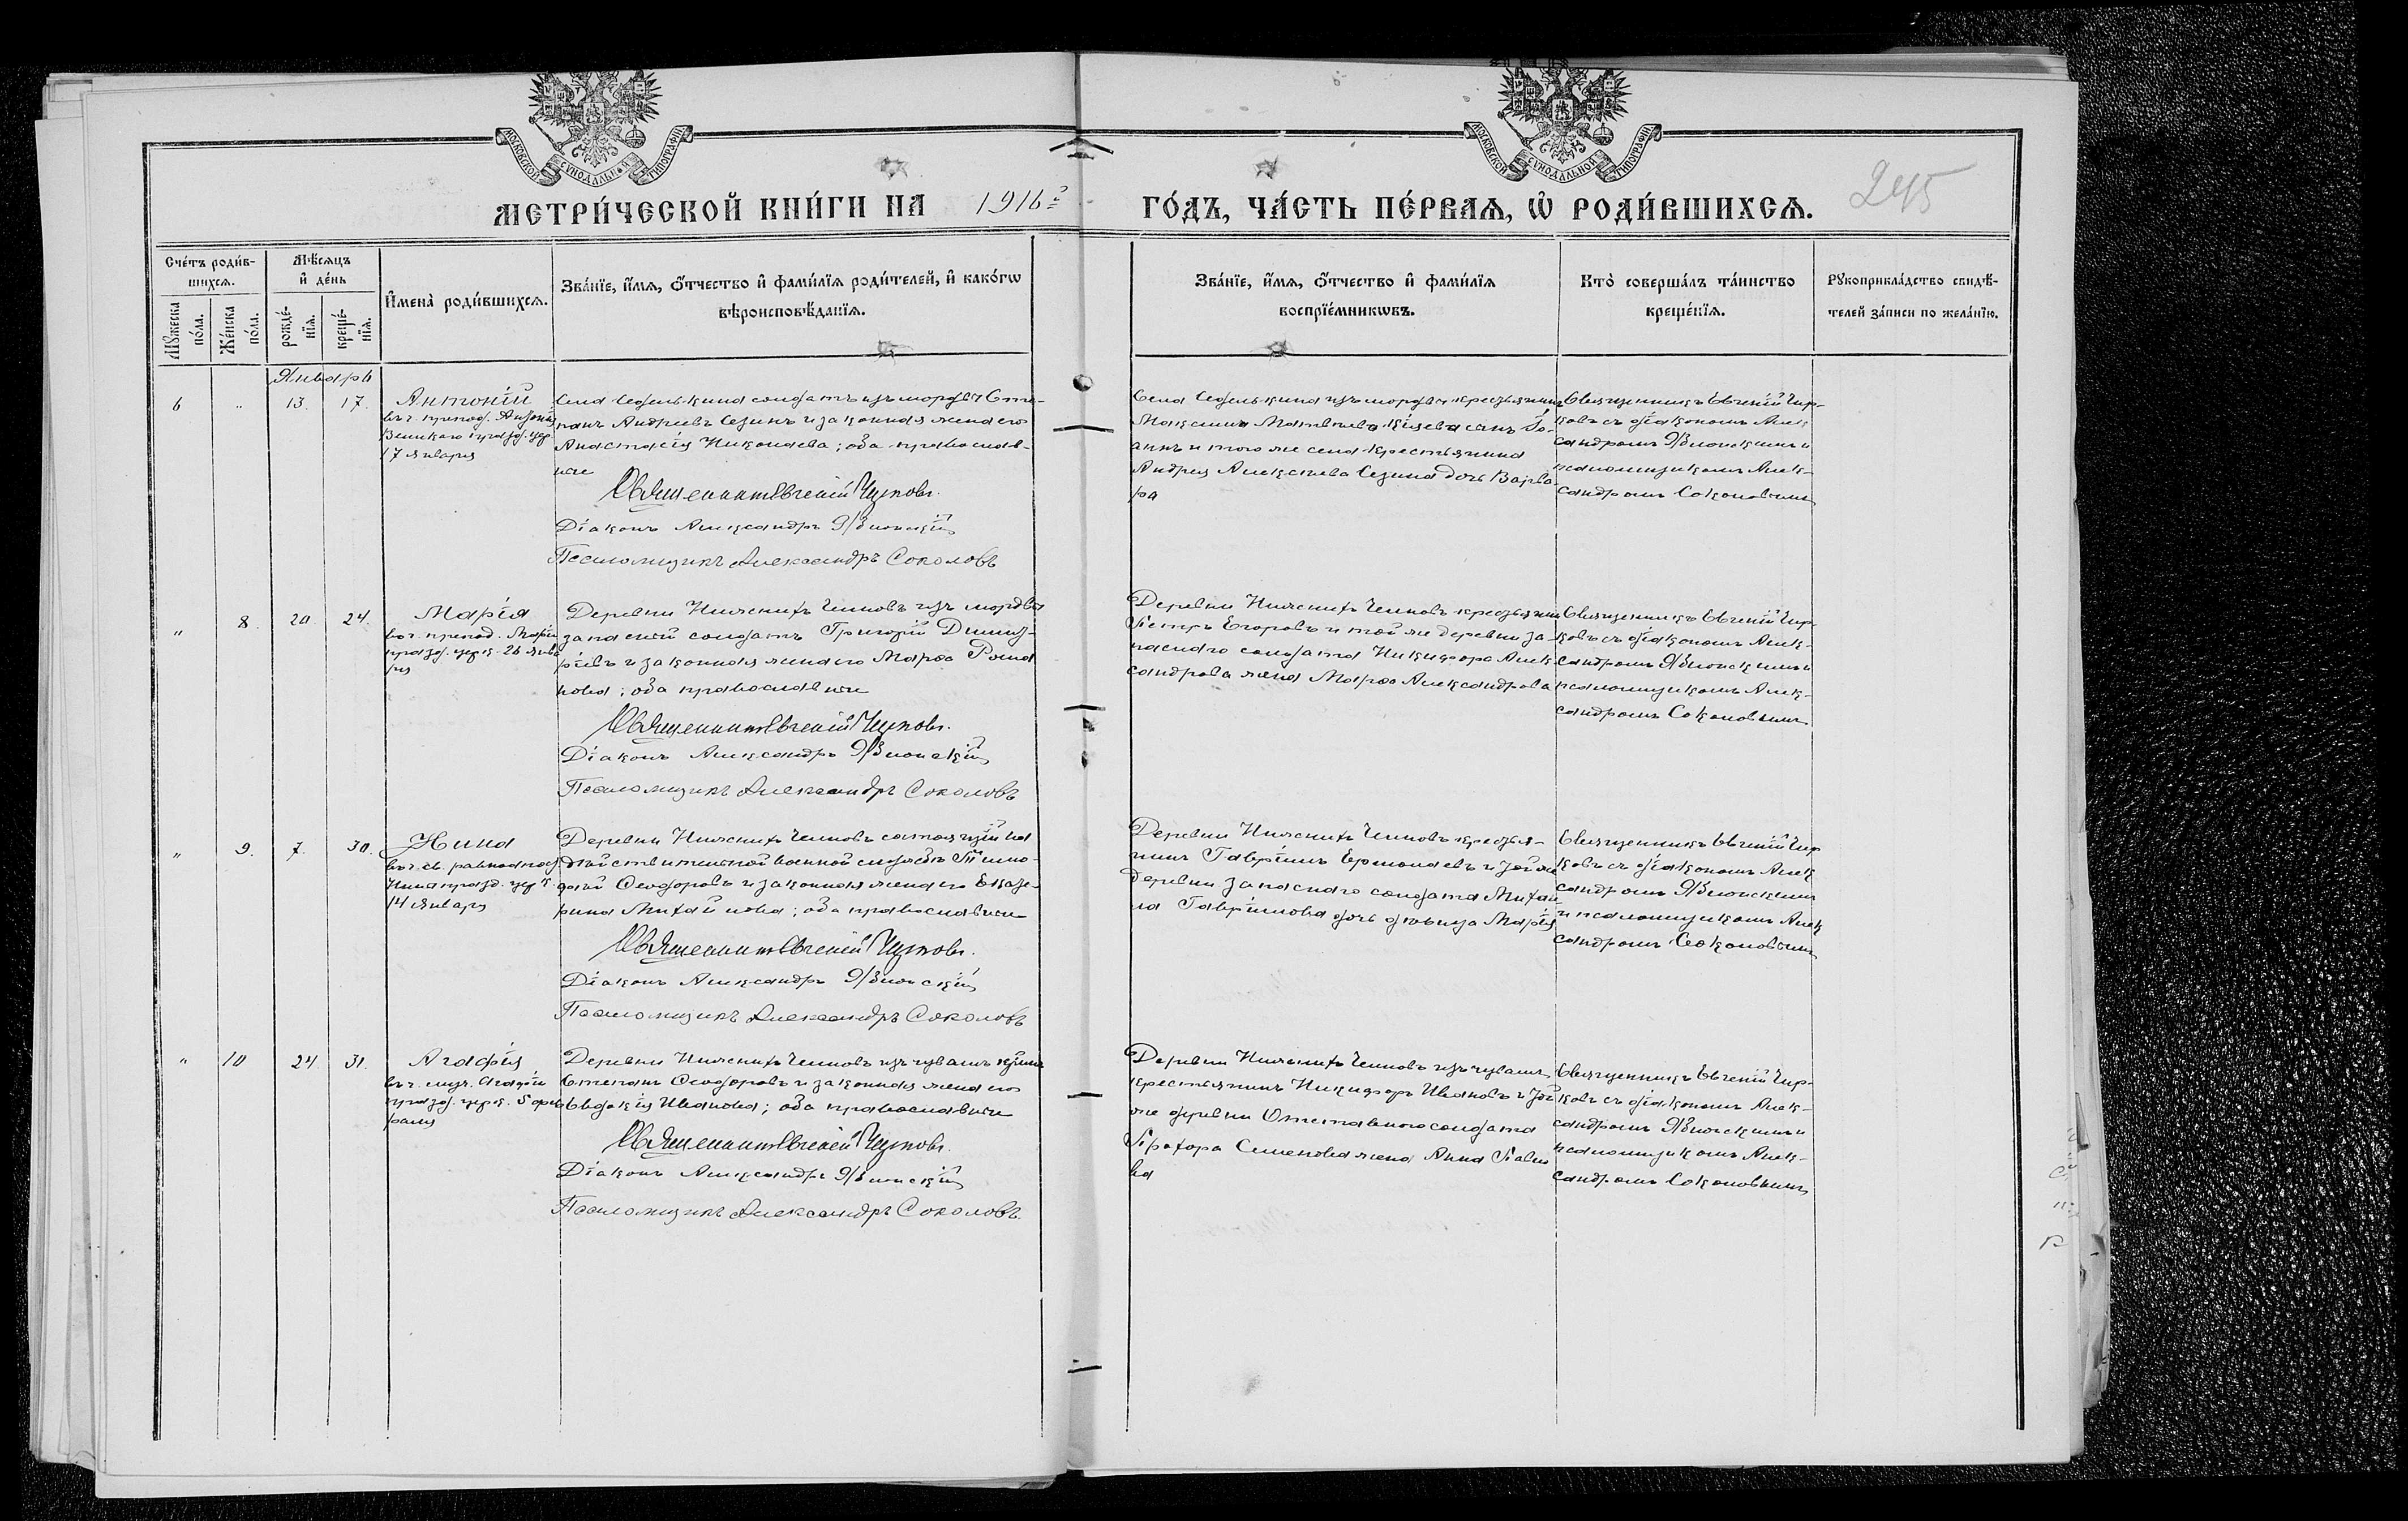 МОСКОВСКОЙ СѴНОДАЛЬНОЙ ТИПОГРАФІИ
МОСКОВСКОЙ СѴНОДАЛЬНОЙ ТИПОГРАФІИ
МЕТРИ́ЧЕСКОЙ КНИ́ГИ НА 1916 ГО́ДЪ, ЧА́СТЬ ПЕ́РВАЯ, Ѡ РОДИ́ВШИХСЯ.
245
Сче́тъ роди́в-
шихся.
Му́жеска по́ла.
Же́нска по́ла.
Мѣ́сяцъ
и де́нь
рожде́-
нїя.
креще́-
нїя.
Имена̀ роди́вшихся.
Зва́нїе, и́мя, о́тчество и фами́лїя роди́телей, и како́гѡ
вѣроисповѣ́данїя.
Зва́нїе, и́мя, о́тчество и фами́лїя
воспрїе́мникѡвъ.
Кто̀ соверша́лъ та́инство
креще́нїя.
Рукоприкла́дство свидѣ́-
телей за́писи по жела́нїю.
Январь
6 " 13. 17.
Антоній
въ ч. препод. Антонія
Великаго празд. цер.
17 января
Села Седелькина солдатъ изъ мордвы Сте-
панъ Андреевъ Сезинъ и законная жена его
Анастасія Николаева; оба православ-
ные
Священникъ Евгеній
Діаконъ Александръ Яблонскій
Псаломщикъ Александръ Соколовъ
Села Седелькина изъ мордвы крестьянина
Максима Матвѣева сынъ Іо-
аннъ и того же села крестьянина
Андрея Алексѣева Сезина дочь Варва-
ра
Священникъ Евгеній
съ діакономъ Алек-
сандромъ Яблонскимъ и
псаломщикомъ Алек-
сандромъ Соколовымъ
" 8. 20 24.
Марія
въ ч. препод. Маріи
празд. церк. 26 янва
ря
Деревни Нижнихъ Челновъ изъ мордвы
запасной солдатъ Григорій Димит-
ріевъ и законная жена его Марѳа Рома
нова; оба православные
Священникъ Евгеній
Діаконъ Александръ Яблонскій
Псаломщикъ Александръ Соколовъ
Деревни Нижнихъ Челновъ крестьянинъ
Петръ Егоровъ и той же деревни за-
паснаго солдата Никифора Алек-
сандрова жена Марѳа Александрова
Священникъ Евгеній
съ діакономъ Алек-
сандромъ Яблонскимъ и
псаломщикомъ Алек-
сандромъ Соколовымъ
" 9. 7. 30.
Нина
въ ч. св. равноапос
Нины празд. церк
14 января
Деревни Нижнихъ Челновъ состоящій на
дѣйствительной военной службѣ Тимо-
ѳей Ѳеодоровъ и законная жена его Екате-
рина Михайлова; оба православные
Священникъ Евгеній
Діаконъ Александръ Яблонскій
Псаломщикъ Александръ Соколовъ
Деревни Нижнихъ Челновъ крестья-
нинъ Гавріилъ Ермолаевъ и той же
деревни запаснаго солдата Михаи
ла Гавріилова дочь дѣвица Марія
Священникъ Евгеній
съ діакономъ Алек
сандромъ Яблонскимъ
и псаломщикомъ Алек
сандромъ Соколовымъ
" 10 24. 31.
Агафія
въ ч. муч. Агафіи
празд. церк. 5 фев
раля
Деревни Нижнихъ Челновъ изъ чувашъ
Степанъ Ѳеодоровъ и законная жена его
Евдокія Иванова; оба православные
Священникъ Евгеній
Діаконъ Александръ Яблонскій
Псаломщикъ Александръ Соколовъ.
Деревни Нижнихъ Челновъ изъ чувашъ
крестьянинъ Никифоръ Ивановъ и той
же деревни Отставного солдата
Прохора Семенова жена Анна Павло
ва
Священникъ Евгеній
съ діакономъ Алек-
сандромъ Яблонскимъ и
псаломщикомъ Алек-
сандромъ Соколовымъ